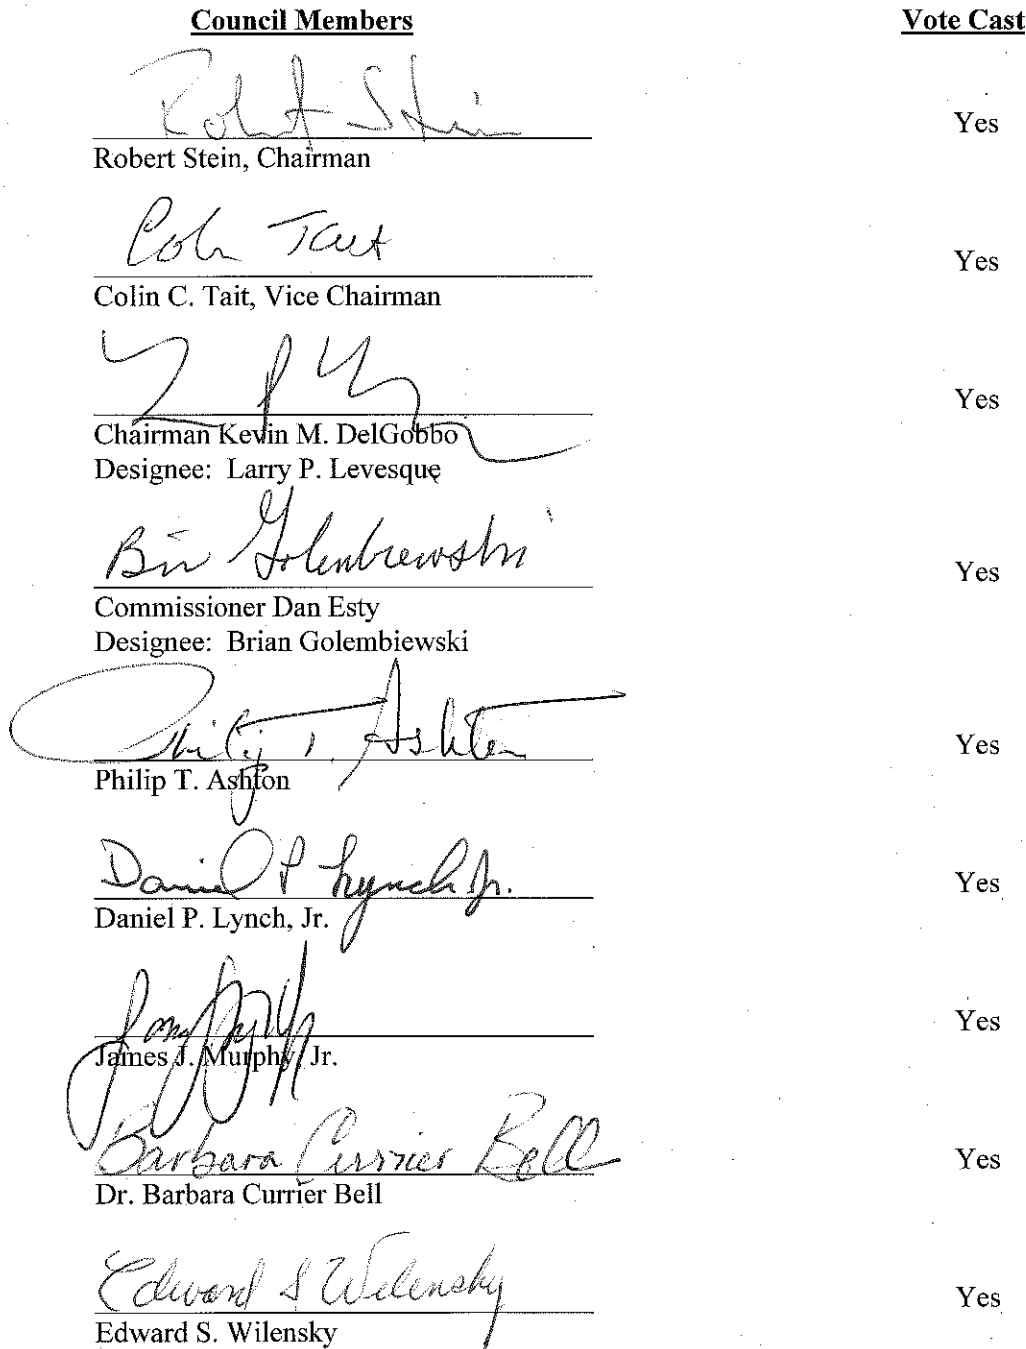 Council Members Vote Cast
Robert Stein Yes
Robert Stein, Chairman
Colin Tait
Yes
Colin C. Tait, Vice Chairman
Yes
Chairman Kevin M. DelGobbo
Designee: Larry P. Levesque
Golembiewski
Yes
Commissioner Dan Esty
Designee: Brian Golembiewski
Philip T. Ashton
Yes
Philip T. Ashton
Daniel P Lynch Jr.
Yes
Daniel P. Lynch, Jr.
Yes
James J. Murphy, Jr.
Barbara Currier Bell
Yes
Dr. Barbara Currier Bell
Edward S Wilensky
Yes
Edward S. Wilensky